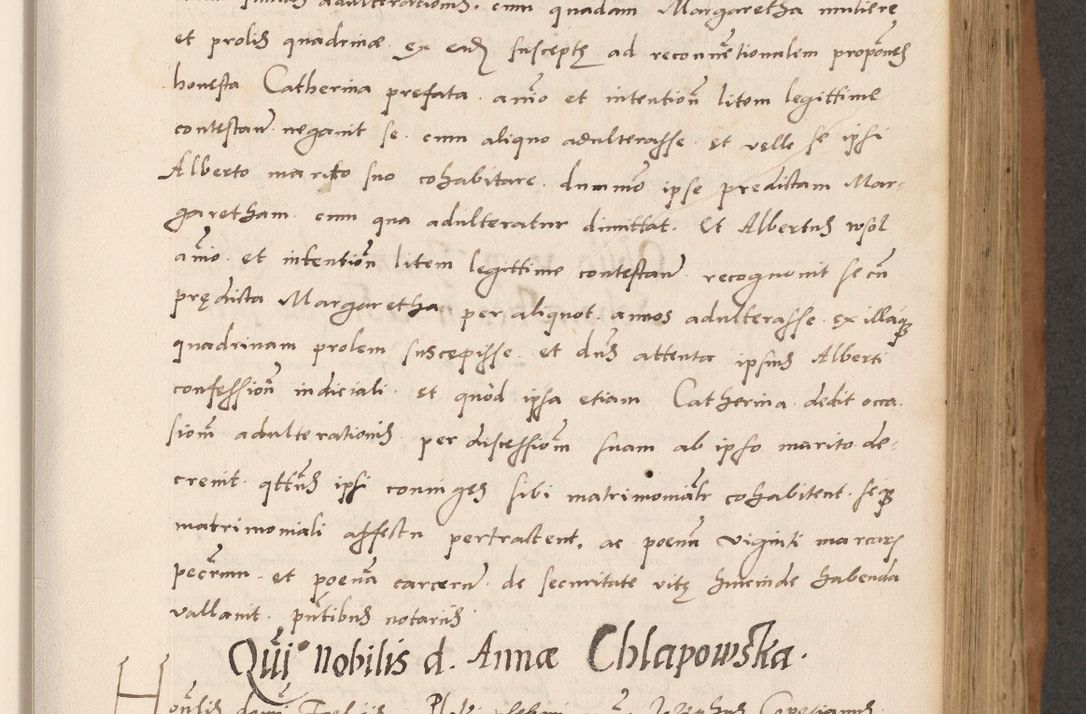 adulterationis. cum quadam Margaretha muliere
et prolis quadrinæ ex eadẽ susceptę ad reconuẽtionalem propõnes
honesta Catherina prefata. añio et intentioñ litem legittime
contestañ. negauit se. cum aliquo adulterasse. et velle se ipsi
Alberto marito suo cohabitare. dummõ ipse predictam Mar-
garetham. cum qua adulteratur dimittat. Et Albertus
añio. et intentioñ litem legittime contestañ. recognouit se cũ
prędicta Margaretha per aliquot. annos adulterasse. ex illaqȝ
quadrinam prolem suscepisse. et dñs attenta ipsius Alberti
confessioñ iudiciali. et quod ipsa etiam Catherina. dedit occa.
sioñ adulterationis. per discessioñ suam ab ipso marito. de-
creuit. qtñs ipsi coniuges sibi matrimoniãlr cohabitent. seqȝ
matrimoniali affectu pertractent, ac poena viginti marcarȝ
pecũn. et poena carcerũ. de securitate vitę hincinde habenda
vallauit. pñtibus notariis
Qui nobilis d. Annæ Chlapowska.